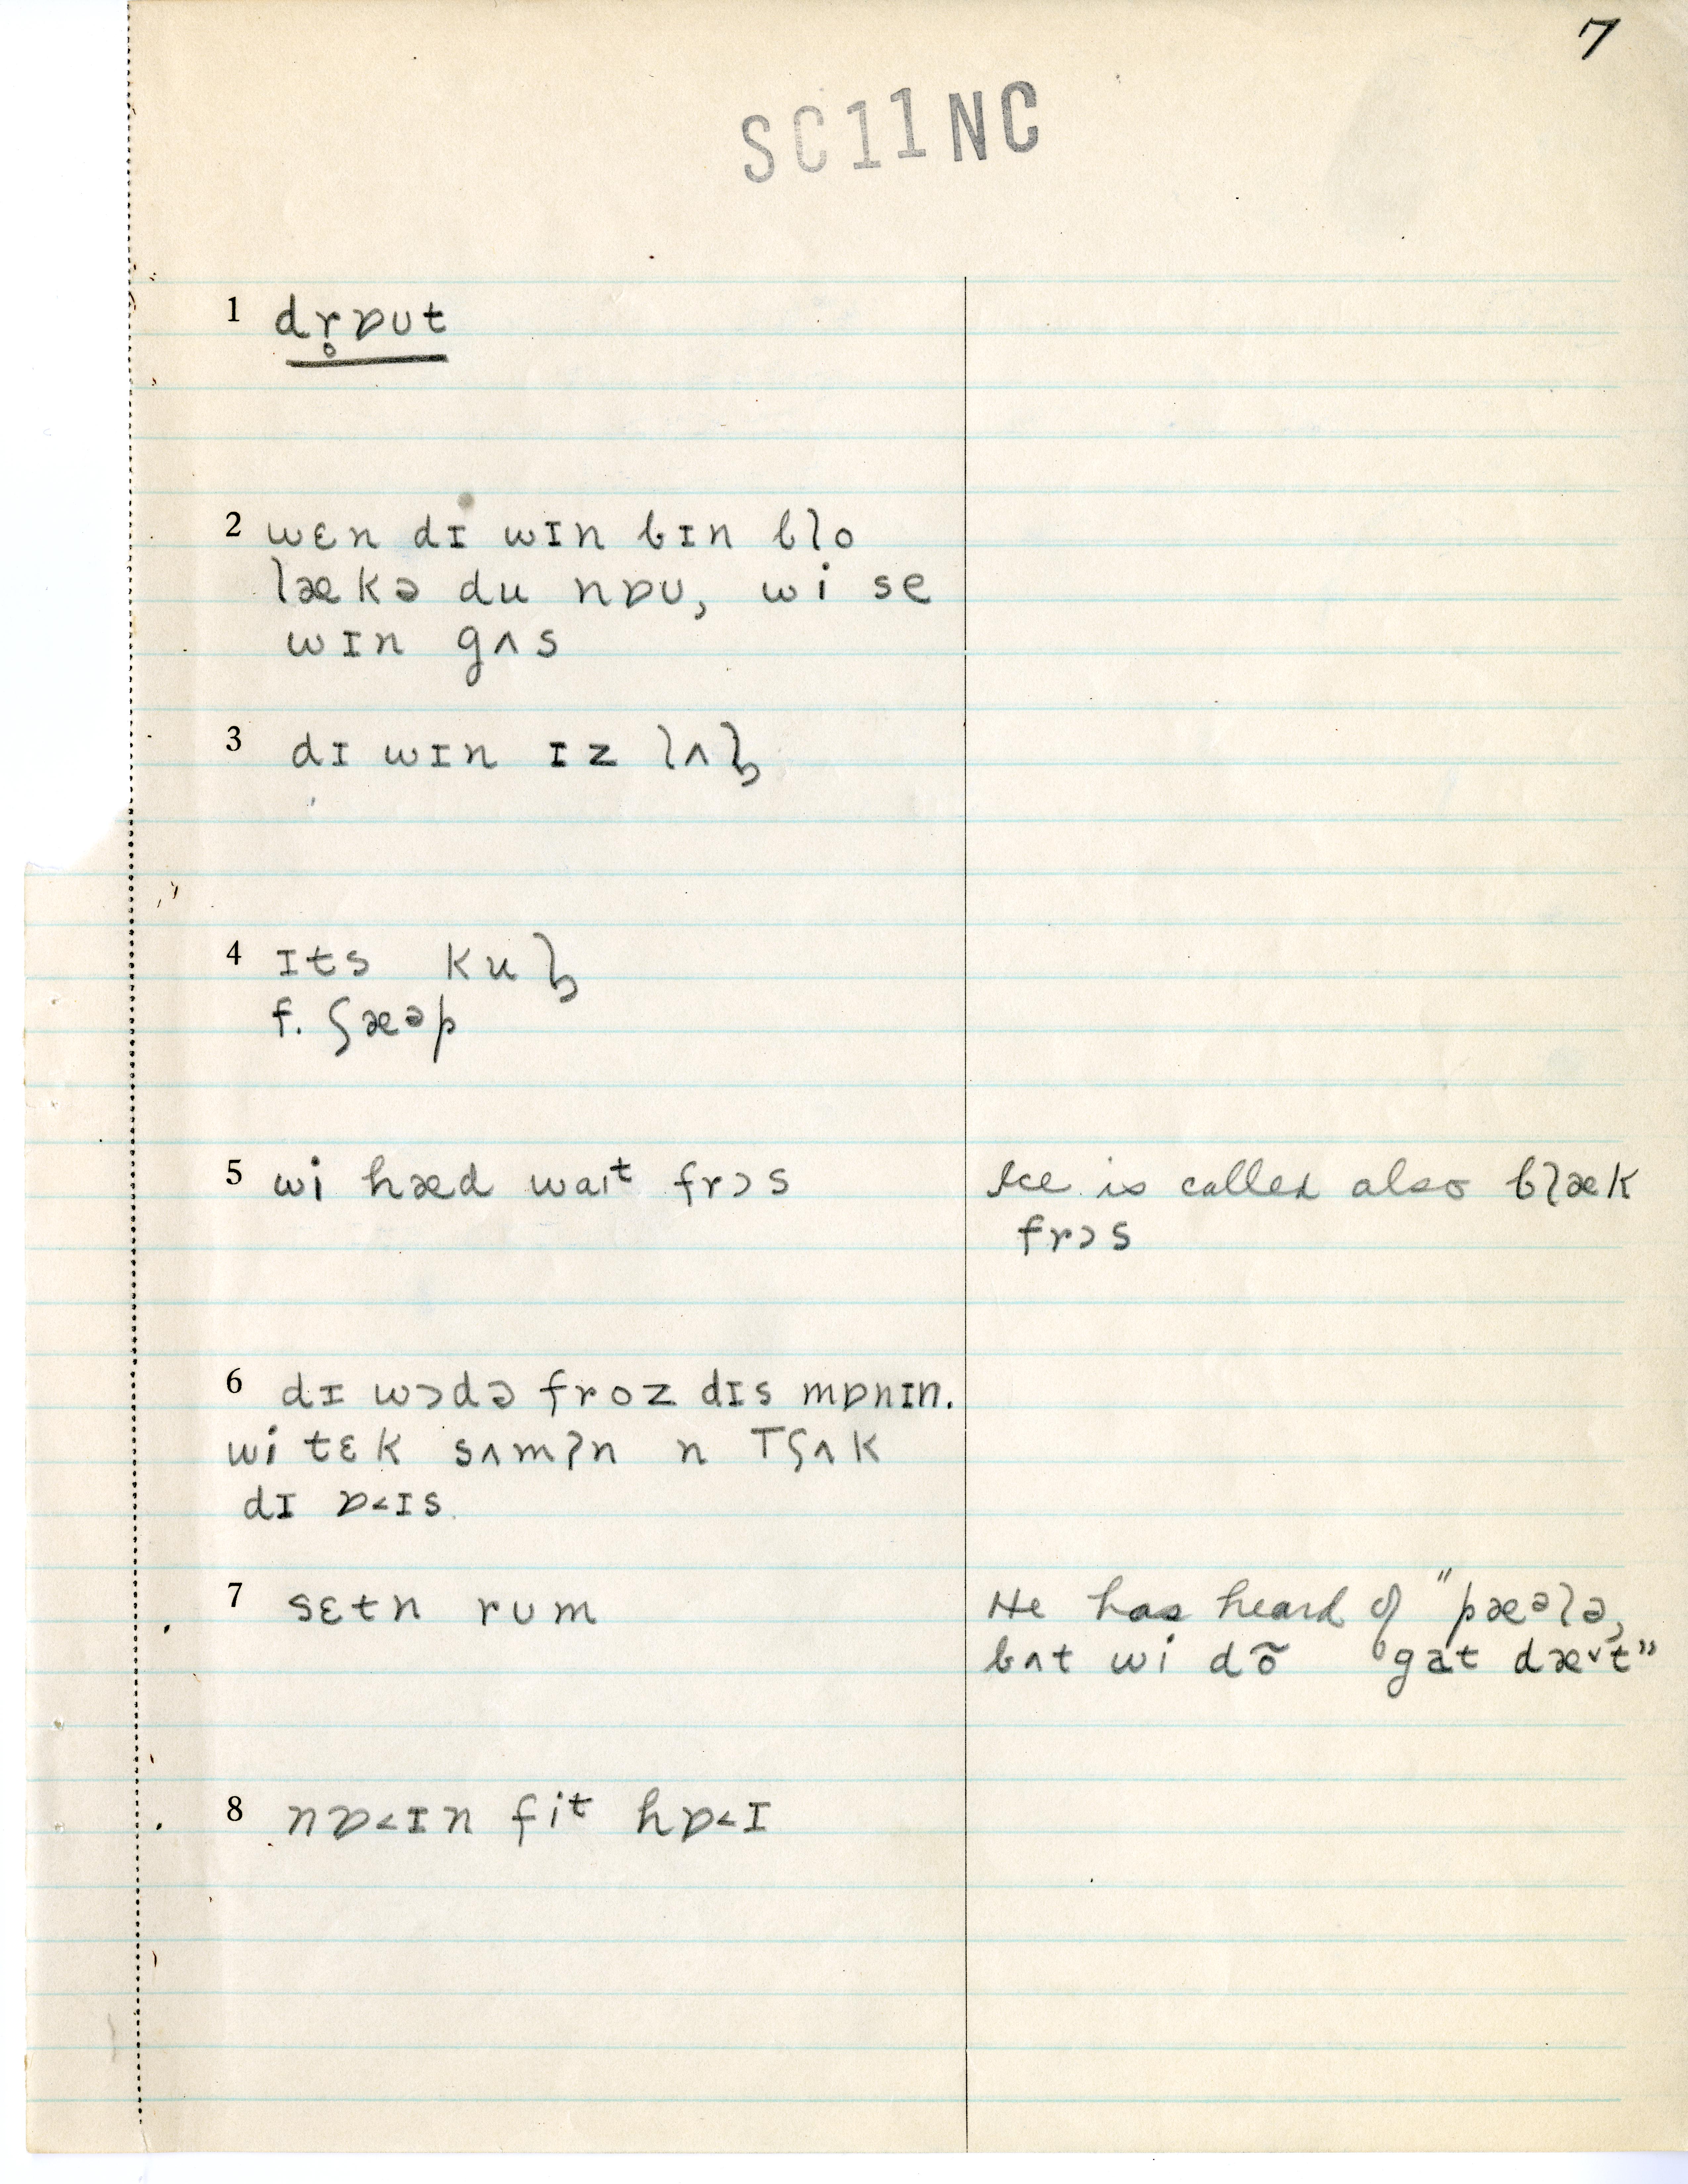 7
SC11NC
1 dr̥ɒʊt
2 wɛn dɪ wɪn bɪn blo
lækə du nɒʊ, wi se
wɪn gʌs
3 dɪ wɪn ɪz lʌɫ
4 ɪts kuɫ
f. ʃæᵊp
5 wi hæd waɪᵗ frɔs
Ice is called also blæk
frɔs
6 dɪ wɔdə froz dɪs mɒnɪn.
wi tɛk sʌmʔn n tʃʌk
dɪ ɒ˂ɪs.
7 sɛtn rʊm
He has heard of "pæᵊlə,
bʌt wi dõ gat dæ˅t"
8 nɒ˂ɪn fiᵗ hɒ˂ɪ